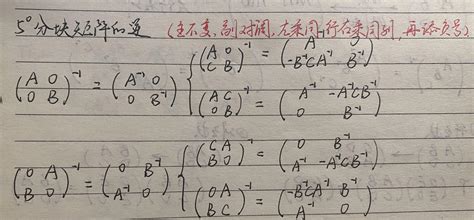 5° 分块矩阵的逆 (主不变,副对调,左乘同行右乘同列,再添负号)
(A O; O B)⁻¹ = (A⁻¹ O; O B⁻¹) { (A O; C B)⁻¹ = (A⁻¹ O; -B⁻¹CA⁻¹ B⁻¹)
(A C; O B)⁻¹ = (A⁻¹ -A⁻¹CB⁻¹; O B⁻¹)
(O A; B O)⁻¹ = (O B⁻¹; A⁻¹ O) { (C A; B O)⁻¹ = (O B⁻¹; A⁻¹ -A⁻¹CB⁻¹)
(O A; B C)⁻¹ = (-B⁻¹CA⁻¹ B⁻¹; A⁻¹ O)